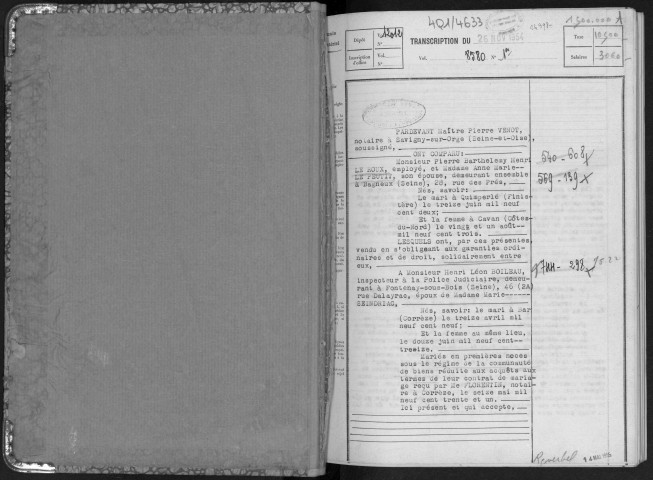 4Q1/4633
Dépôt
N°
Inscription
d'office
Vol.
N°
TRANSCRIPTION DU 26 NOV 1954
Vol. 8780 N° 1er
Taxe
Salaires
PARDEVANT Maître Pierre VENOT,
notaire à Savigny-sur-Orge (Seine-et-Oise),
soussigné,
ONT COMPARU:
Monsieur Pierre Barthélémy Henri
LE ROUX, employé, et Madame Anne Marie--
LE PEUTIT, son épouse, demeurant ensemble
à Bagneux (Seine), 28, rue des Prés,
Nés, savoir:
Le mari à Quimperlé (Finis-
tère) le treize juin mil neuf
cent deux;
Et la femme à Cavan (Côtes-
du-Nord) le vingt et un août--
mil neuf cent trois.
LESQUELS ont, par ces présentes,
vendu en s'obligeant aux garanties ordi-
naires et de droit, solidairement entre
eux,
A Monsieur Henri Léon BOILEAU,
inspecteur à la Police Judiciaire, demeu-
rant à Fontenay-sous-Bois (Seine), 46 (BA)
rue Dalayrac, époux de Madame Marie------
Nés, savoir: le mari à Bar
(Corrèze) le treize avril mil
neuf cent neuf;
Et la femme au même lieu,
le douze juin mil neuf cent--
treize.
Mariés en premières noces
sous le régime de la communauté
de biens réduite aux acquêts aux
termes de leur contrat de maria-
ge reçu par Me FLORENTIN, notai-
re à Corrèze, le seize mai mil
neuf cent trente et un.
Ici présent et qui accepte,
570-608
569-139
298